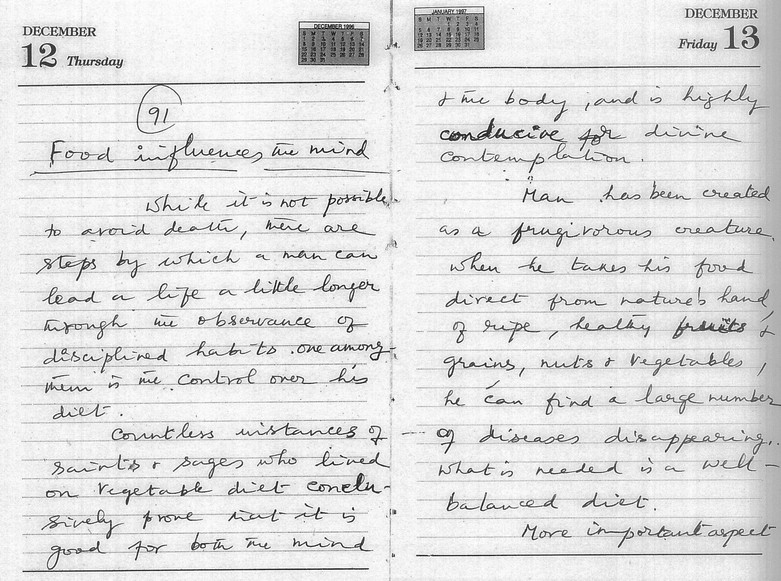 DECEMBER
12 Thursday
DECEMBER 1996
91
Food influences the mind
While it is not possible
to avoid death, there are
steps by which a man can
lead a life a little longer
through the observance of
disciplined habits. one among-
them is the control over his
diet.
Countless instances of
saints & sages who lived
on vegetable diet conclu-
sively prove that it is
good for both the mind
JANUARY 1997
DECEMBER
Friday 13
& the body, and is highly
conducive for divine
contemplation.
Man has been created
as a frugivorous creature.
when he takes his food
direct from nature's hand,
of ripe, healthy fruits &
grains, nuts & vegetables,
he can find a large number
of diseases disappearing.
what is needed is a well-
balanced diet.
More important aspect